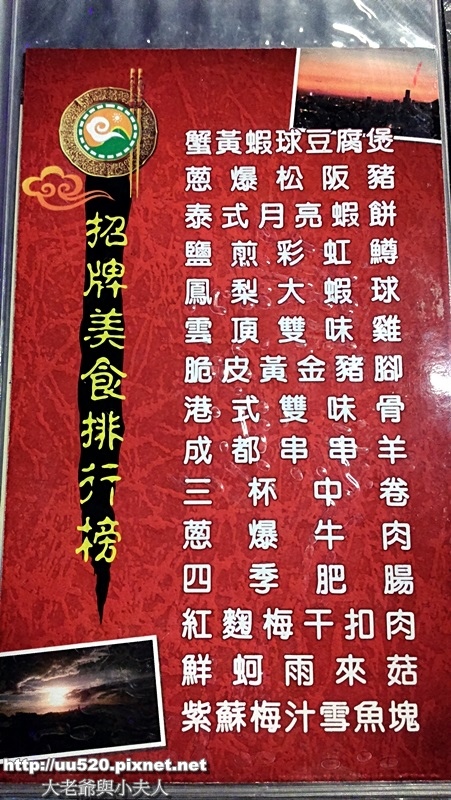 招牌美食排行榜
蟹黃蝦球豆腐煲
蔥爆松阪豬
泰式月亮蝦餅
鹽煎彩虹鱒
鳳梨大蝦球
雲頂雙味雞
脆皮黃金豬腳
港式雙味骨
成都串串羊
三杯中卷
蔥爆牛肉
四季肥腸
紅麴梅干扣肉
鮮蚵雨來菇
紫蘇梅汁雪魚塊
http://uu520.pixnet.net
大老爺與小夫人